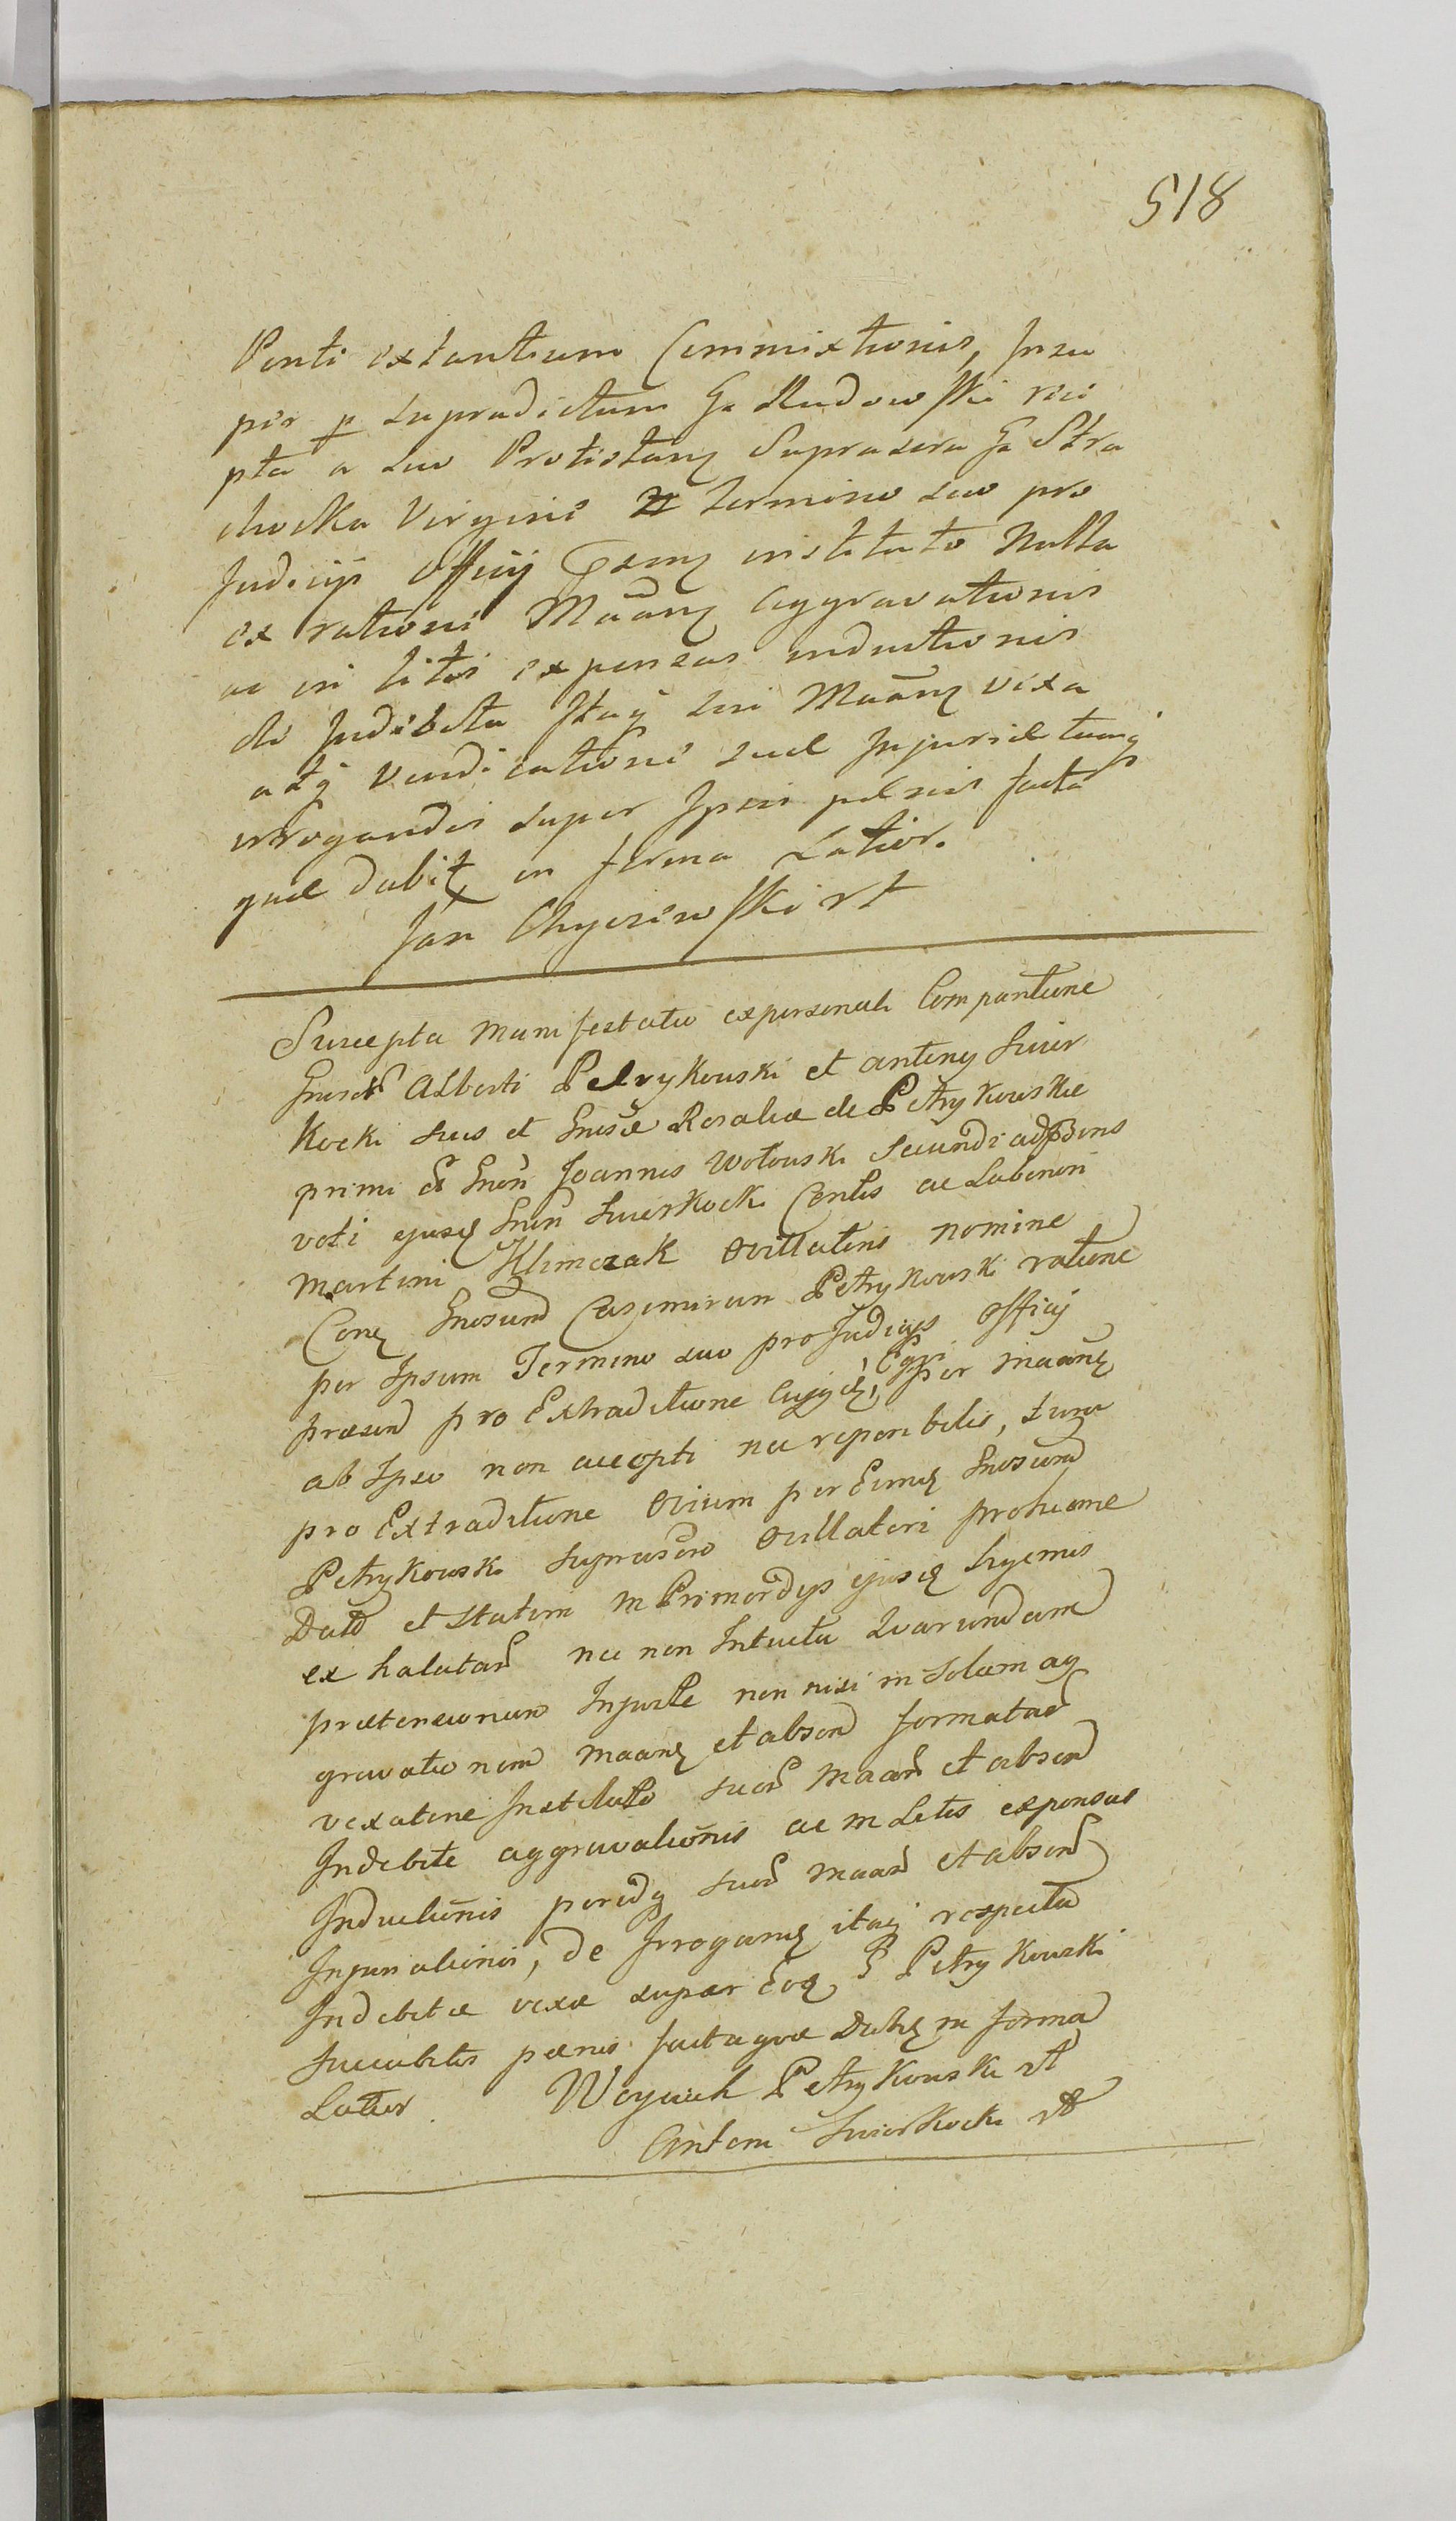 518
Ponti extantium Commixtionis, Insu
per p supradictum G. Rudowski rece
pta a suo Protestanz Suprascra G. Stra
chocka Virgine termino suo pro
Judicijs Officij institato Nulla
ex rationi Maãnz Aggravationis
ac in litis expensas inductionis
de Indebita Itaq sui Maãnz vexa
atq vendicatione suae Injuriae
irrogandis super Ipsis paenis facta
quae dabitz in forma Latior.
Jan Chyczewski rt
Suscepta Manifestatio expersonali Compantione
Gnersr Alberti Petrykowski et antony Swier
kocki suis et Gnesae Rosaliae de Petrykowskie
primi et Gnen Joannis Wolowski Secundi adpsens
voti ejusq Gnen Swierkocki Centis ac Laboriosi
Martini Klimczak Ovillatoris nomine
Conz Gnosum Casimirum Petrykowski ratione
per Ipsum Termino suo pro Judicijs Officij
praesen pro Extraditione Cujusq, Equi per maanz
ab Ipso non accepti nec reperibilis, tum
pro Extraditione Ovium per Eumq Gnosum
Petrykowski suprascro Ovillatori
Dato et statim in Primordijs ejusq hyemis
ex halatar nec non Intuitu Quarundam
praetensionum Injuste non nisi in solam ag
gravationem maanz et absen formatar
vexatone Instituto suor maar et absen
Indebite aggravationis ac in Litis expensas
Inductionis peridq suor maar et absen
Injuriationis, de Irroganz itaq respectu
Indebitae vexae super Eoq G Petrykowski
succubitis paenis factaquae Dabz in forma
Latior. Woyciech Petrykowski rt
Antoni Swierkocki rt